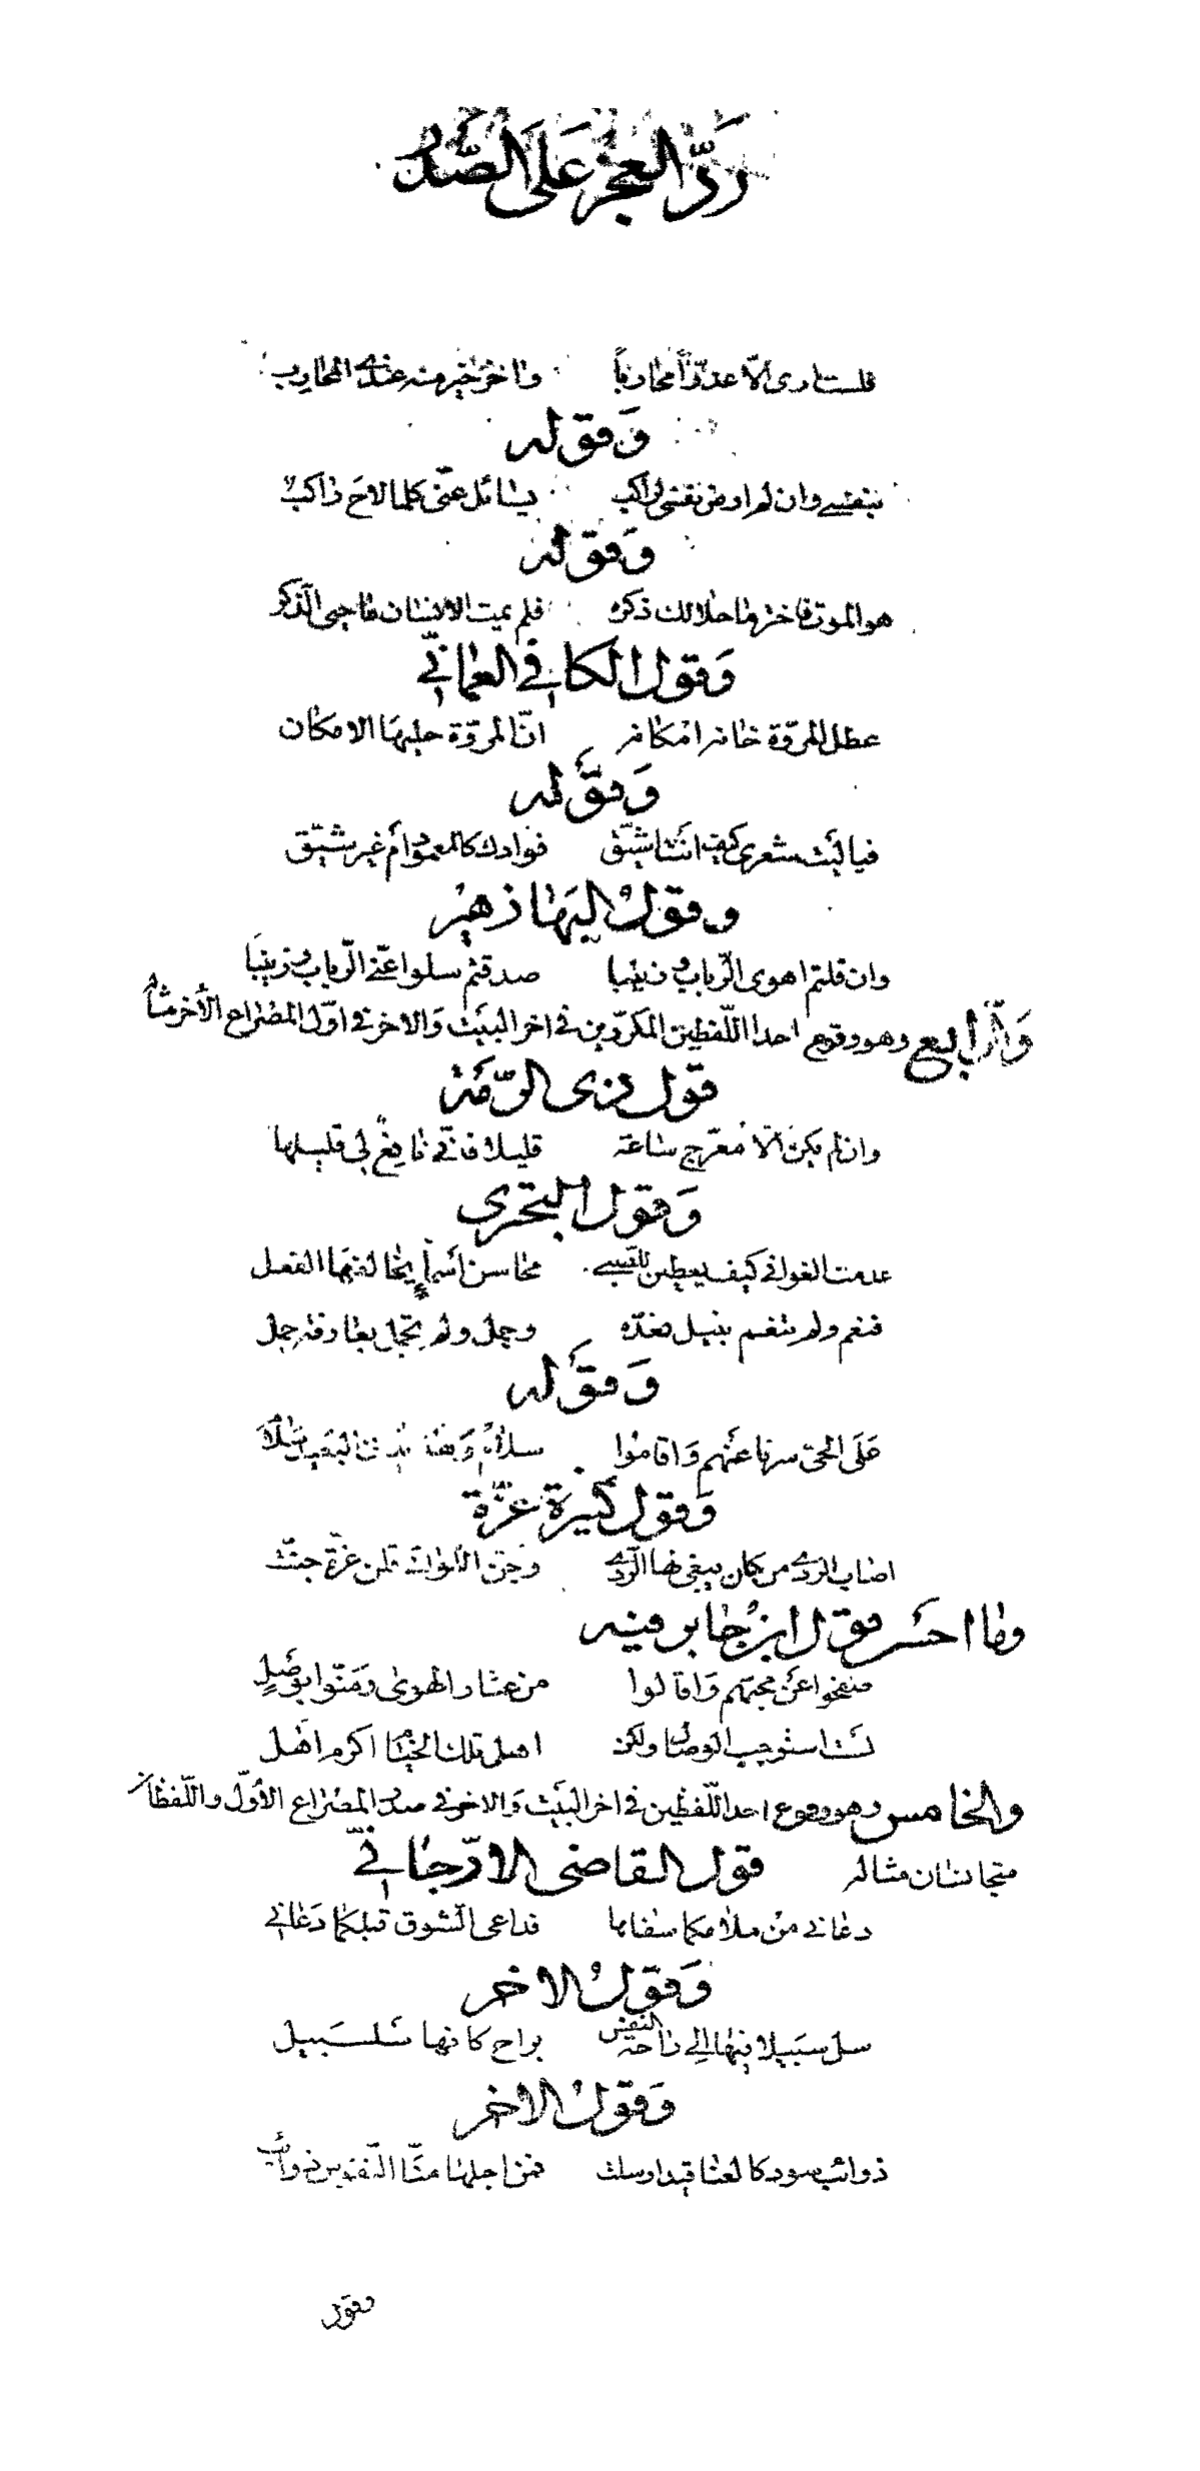 رَدّ العجز عَلَى الصَّدْر
فلست ارى الّا عدوّاً محارباً واخر خير منه عندى المحارب
وَقوله
بنفسى وان لم ارض نفسى لراكب يسائل عنّى كلما لاحَ راكب
وَقوله
هو الموت فاختر ما حلا لك ذكره فلم يمت الانسان ما حيى الذكر
وَقول الكافى العمانىّ
عطل المروّة خانه امكانه انّ المروّة حليها الامكان
وَقوله
فيا ليت شعرى كيف انت اشيّق فوادك كالمعمود أم غير شيّق
وقول البهَا زهير
وان قلتم اهوى الرّباب وزينبا صدقتم سلوا عنّى الرّباب وزينبا
وَالرّابع وهو وقوع احد اللّفظين المكررين فى اخر البيت وَالاخر فى اوّل المصراع الأخر مثاله
قول ذى الرّمّة
وان لم يكن الّا معرّج ساعة قليلا فانّى نافع لى قليلها
وَقول البحترى
عدمت الغوانى كيف يعطين للصبى محاسن أسماء يخالفها الفعل
فنعم ولم تنعم بنيل نعدّه وجمل ولم تجمل بعارفة جمل
وَقوله
عَلَى الحىّ سرنا عنهم وَاقاموا سلام
وَقول كثيرة عزّة
اصاب الردى من كان يبغى لها الرّدى وجنّ اللواتى قلن عزة جنّت
وما احسن قول ابن جابر فيه
صفحوا عَن محبّهم وَاقالوا من عثار الهوى ومَنّوا بوَصلٍ
لست استوجب الوصال ولكن اهل تلك الخيام اكرم اهل
والخامس وهو وقوع احد اللّفظين فى اخر البيت وَالاخر فى صدر المصراع الأوّل واللّفظان
متجانسان مثاله قول القاضى الارّجانىّ
دعانى من ملامكما سفاها فداعى الشوق قبلكما دَعانى
وَقول الاخر
سل سبيلا فيها الى راحة النفس براح كانها سَلسَبيل
وَقول الاخر
ذوائب سود كالعناقيد ارسلت فمن اجلها منّا النّفوس ذوائب
وقول